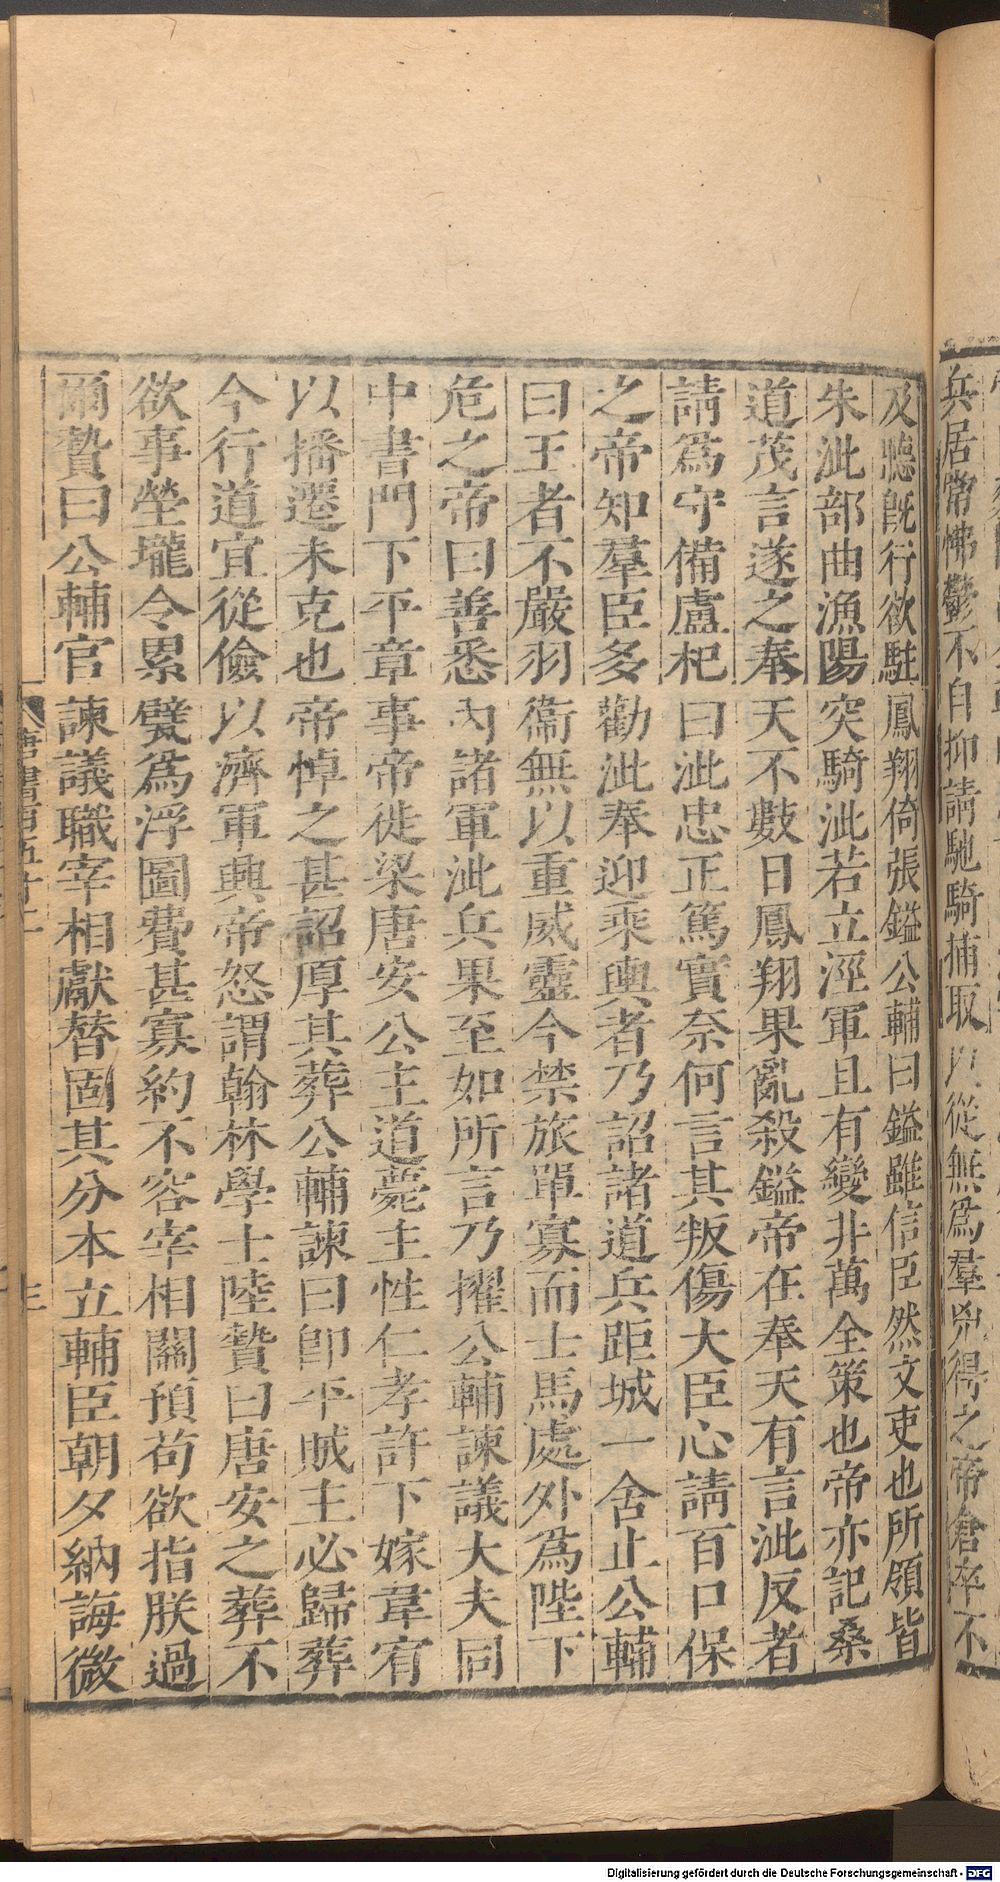 兵居常怫鬱不自抑請馳騎捕取以從無爲羣兇得之帝倉卒不
及聽既行欲駐鳳翔倚張鎰公輔曰鎰雖信臣然文吏也所領皆
朱泚部曲漁陽突騎泚若立涇軍且有變非萬全策也帝亦記桑
道茂言遂之奉天不數日鳳翔果亂殺鎰帝在奉天有言泚反者
請爲守備盧杞曰泚忠正篤實奈何言其叛傷大臣心請百口保
之帝知羣臣多勸泚奉迎乘輿者乃詔諸道兵距城一舍止公輔
曰王者不嚴羽衞無以重威靈今禁旅單寡而士馬處外爲陛下
危之帝曰善悉內諸軍泚兵果至如所言乃擢公輔諫議大夫同
中書門下平章事帝徙梁唐安公主道薨主性仁孝許下嫁韋宥
以播遷未克也帝悼之甚詔厚其葬公輔諫曰卽平賊主必歸葬
今行道宜從儉以濟軍興帝怒謂翰林學士陸贄曰唐安之葬不
欲事塋壠令累甓爲浮圖費甚寡約不容宰相關預苟欲指朕過
爾贄曰公輔官諫議職宰相獻替固其分本立輔臣朝夕納誨微
唐書百五十二
Digitalisierung gefördert durch die Deutsche Forschungsgemeinschaft - DFG